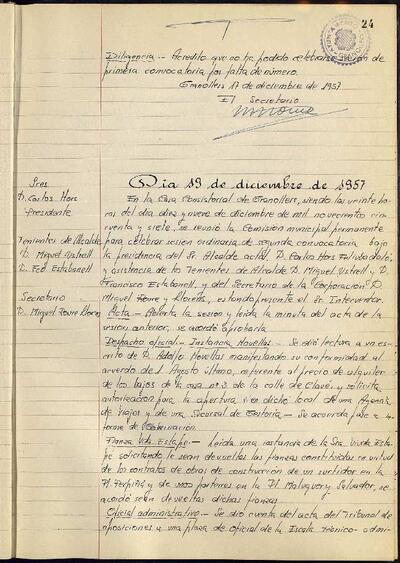 24
Diligencia.- Acredito que no ha podido celebrarse sesión de
primera convocatoria por falta de número.
Granollers 17 de diciembre de 1957
El Secretario
Sres
D. Carlos Hors
Presidente
Tenientes de Alcalde
D. Miguel Ustrell
D. Fco Estabanell
Secretario
D. Miguel Roure Llorens
Día 19 de diciembre de 1957
En la Casa Consistorial de Granollers, siendo las veinte ho-
ras del día diez y nueve de diciembre de mil novecientos cin-
cuenta y siete, se reunió la Comisión municipal permanente
para celebrar sesión ordinaria de segunda convocatoria bajo
la presidencia del Sr. Alcalde actal, D. Carlos Hors
y asistencia de los Tenientes de Alcalde D. Miguel Ustrell y D.
Francisco Estabanell, y del Secretario de la Corporación D.
Miguel Roure y Llorens, estando presente el Sr. Interventor.
Acta - Abierta la sesión y leída la minuta del acta de la
sesión anterior, se acordó aprobarla
Despacho oficial - Instancia Novellas - Se dió lectura a un es-
crito de D. Adolfo Novellas manifestando su conformidad al
acuerdo de 1 Agosto último, referente al precio de alquiler
de los bajos de la casa nº 3 de la calle de Clavé, y solicita
autorización para la apertura en dicho local de una Agencia
de Viajes y de una Sucursal de - Se acuerda pase a in-
forme de Gobernación
Fianza Vda. Estapé - Leída una instancia de la Sra. Viuda Esta-
pé solicitando le sean devueltas las fianzas constituídas en virtud
de los contratos de obras de construcción de un surtidor en la
Pl. Perpiñá y de unos parterres en la Pl. Maluquer y Salvador, se
acordó sean devueltas dichas fianzas
Oficial administrativo - Se dió cuenta del acta del Tribunal de
oposiciones a una plaza de oficial de la Escala técnico-admi-